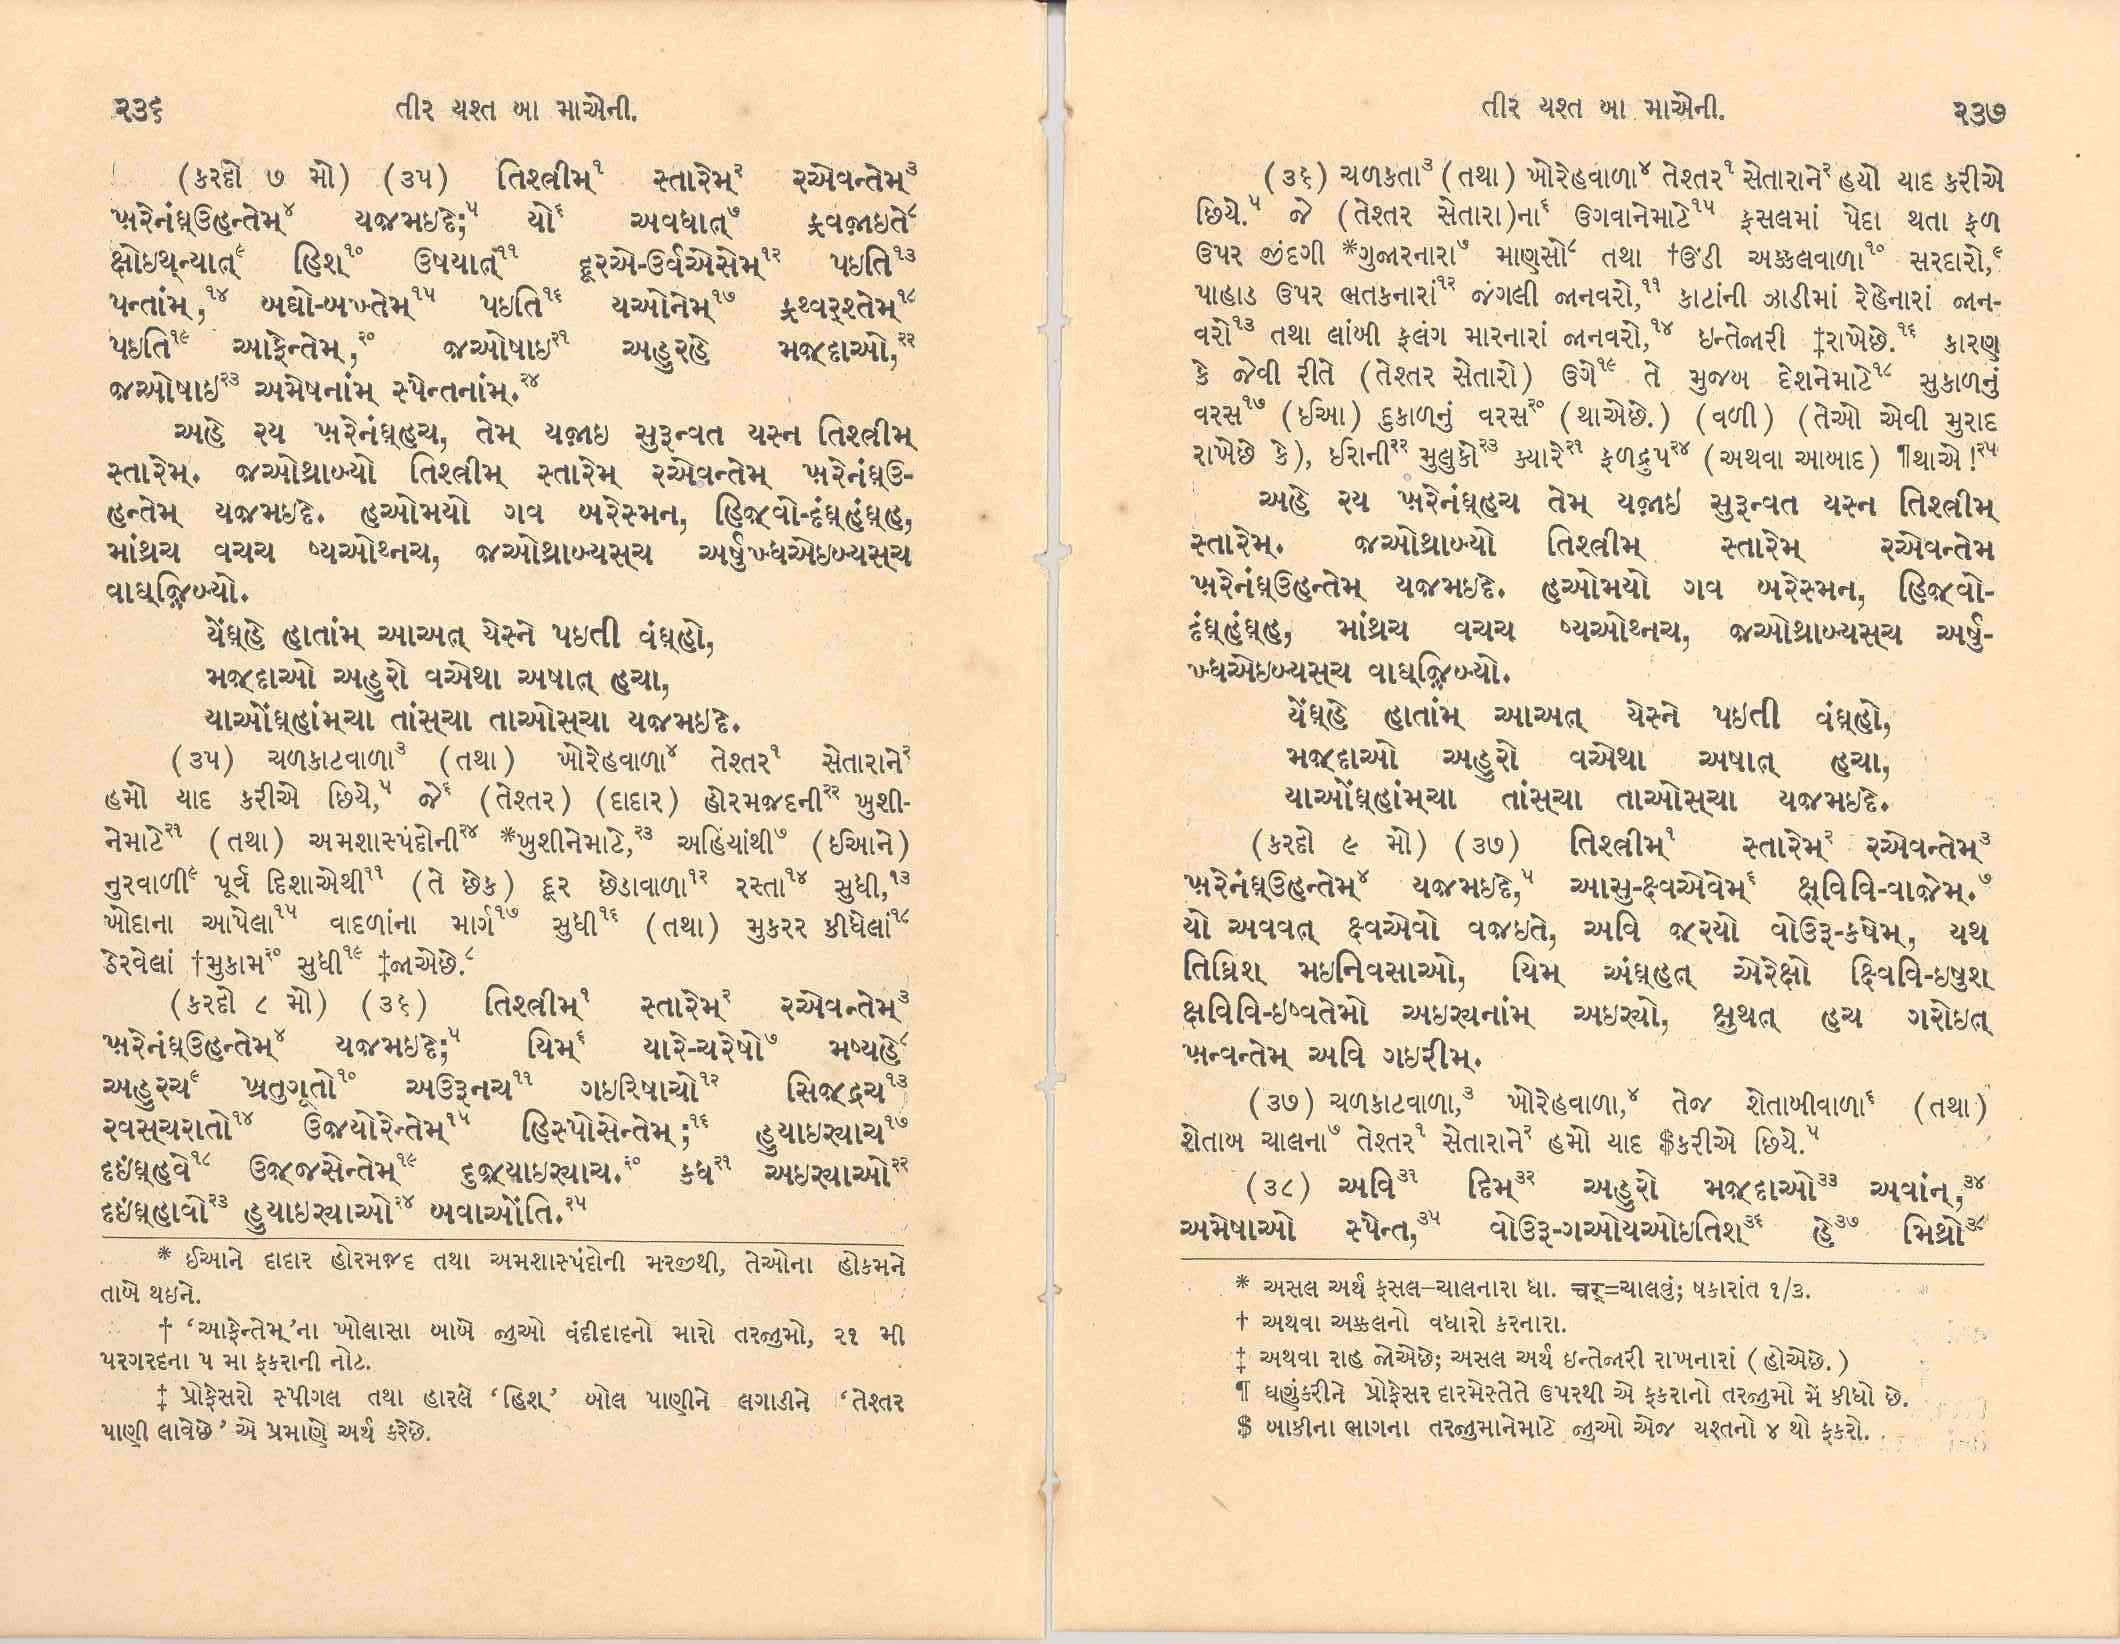 ૨૩૬ તીર યશ્ત બા માએની.
(કરદો ૭ મો) (૩૫) તિશ્ત્રીમ્૧ સ્તારેમ્૨ રએવન્તેમ્૩
ખ઼રેનંઘ્ઉહન્તેમ્૪ યજ઼મઇદે;૫ યો૬ અવધાત્૭ ફ્રવજ઼ાઇતે૮
ક્ષોઇથ્ન્યાત્૯ હિશ્૧૦ ઉષયાત્૧૧ દૂરએ-ઉર્વએસેમ્૧૨ પઇતિ૧૩
પન્તાંમ્,૧૪ બઘો-બખ્તેમ્૧૫ પઇતિ૧૬ યઓનેમ્૧૭ ફ્રથ્વર્શ્તેમ્૧૮
પઇતિ૧૯ આફેન્તેમ્,૨૦ જ઼ઓષાઇ૨૧ અહુરહે મજ઼્દાઓ,૨૨
જ઼ઓષાઇ૨૩ અમેષનાંમ્ સ્પેન્તનાંમ્.૨૪
અહે રય ખ઼રેનંઘ્હચ, તેમ્ યજ઼ાઇ સુરૂન્વત યસ્ન તિશ્ત્રીમ્
સ્તારેમ્. જ઼ઓથ્રાબ્યો તિશ્ત્રીમ્ સ્તારેમ્ રએવન્તેમ્ ખ઼રેનંઘ્ઉ-
હન્તેમ્ યજ઼મઇદે. હઓમયો ગવ બરેસ્મન, હિજ઼્વો-દંઘ્હંઘ્હ,
માંથ્રચ વચચ ષ્યઓથ્નચ, જ઼ઓથ્રાબ્યસ્ચ અર્ષુખ્ધએઇબ્યસ્ચ
વાઘ્જ઼િબ્યો.
યેંઘ્હે હાતાંમ્ આઅત્ યેસ્ને પઇતી વંઘ્હો,
મજ઼્દાઓ અહુરો વએથા અષાત્ હચા,
યાઓંઘ્હાંમ્ચા તાંસ્ચા તાઓસ્ચા યજ઼મઇદે.
(૩૫) ચળકાટવાળા૩ (તથા) ખોરેહવાળા૪ તેશ્તર૧ સેતારાને૨
હમો યાદ કરીએ છિયે,૫ જે૬ (તેશ્તર) (દાદાર) હોરમજ઼્દની૨૨ ખુશી-
નેમાટે૨૧ (તથા) અમશાસ્પંદોની૨૪ *ખુશીનેમાટે,૨૩ અહિંયાંથી૭ (ઈઆને)
નુરવાળી૯ પૂર્વ દિશાએથી૧૧ (તે છેક) દૂર છેડાવાળા૧૨ રસ્તા૧૪ સુધી,૧૩
ખોદાના આપેલા૧૫ વાદળાંના માર્ગ૧૭ સુધી૧૬ (તથા) મુકરર કીધેલાં૧૮
ઠેરવેલાં †મુકામ૨૦ સુધી૧૯ ‡જાએછે.૮
(કરદો ૮ મો) (૩૬) તિશ્ત્રીમ્૧ સ્તારેમ્૨ રએવન્તેમ્૩
ખ઼રેનંઘ્ઉહન્તેમ્૪ યજ઼મઇદે;૫ યિમ્૬ યારે-ચરેષો૭ મષ્યહે૮
અહુરચ૯ ખ્રતુગૂતો૧૦ અઉરૂનચ૧૧ ગઇરિષાચો૧૨ સિજ઼્દ્રચ૧૩
રવસ્ચરાતો૧૪ ઉજ઼્યોરેન્તેમ્૧૫ હિસ્પોસેન્તેમ્;૧૬ હુયાઇર્યાચ૧૭
દઇંઘ્હવે૧૮ ઉજ઼્જસેન્તેમ્૧૯ દુજ઼્યાઇર્યાચ.૨૦ કધ૨૧ અઇર્યાઓ૨૨
દઇંઘ્હાવો૨૩ હુયાઇર્યાઓ૨૪ બવાઓંતિ.૨૫
* ઈઆને દાદાર હોરમજ઼્દ તથા અમશાસ્પંદોની મરજીથી, તેઓના હોકમને
તાબે થઇને.
† ‘આફેન્તેમ્’ના ખોલાસા બાબે જુઓ વંદીદાદનો મારો તરજુમો, ૨૧ મી
પરગરદના ૫ મા ફકરાની નોટ.
‡ પ્રોફેસરો સ્પીગલ તથા હારલે ‘હિશ્’ બોલ પાણીને લગાડીને ‘તેશ્તર
પાણી લાવેછે’ એ પ્રમાણે અર્થ કરેછે.
તીર યશ્ત બા માએની. ૨૩૭
(૩૬) ચળકતા૩ (તથા) ખોરેહવાળા૪ તેશ્તર૧ સેતારાને૨ હયો યાદ કરીએ
છિયે.૫ જે (તેશ્તર સેતારા)ના૬ ઉગવાનેમાટે૧૫ ફસલમાં પેદા થતા ફળ
ઉપર જીંદગી *ગુજારનારા૭ માણસો૮ તથા †ઊંડી અક્કલવાળા૧૦ સરદારો,૯
પાહાડ ઉપર ભતકનારાં૧૨ જંગલી જાનવરો,૧૧ કાટાંની ઝાડીમાં રેહેનારાં જાન-
વરો૧૩ તથા લાંબી ફલંગ મારનારાં જાનવરો,૧૪ ઇન્તેજારી ‡રાખેછે.૧૬ કારણ
કે જેવી રીતે (તેશ્તર સેતારો) ઉગે૧૯ તે મુજબ દેશનેમાટે૧૮ સુકાળનું
વરસ૧૭ (ઈઆ) દુકાળનું વરસ૨૦ (થાએછે.) (વળી) (તેઓ એવી મુરાદ
રાખેછે કે), ઈરાની૨૨ મુલુકો૨૩ ક્યારે૨૧ ફળદ્રુપ૨૪ (અથવા આબાદ) ¶થાએ!૨૫
અહે રય ખ઼રેનંઘ્હચ તેમ્ યજ઼ાઇ સુરૂન્વત યસ્ન તિશ્ત્રીમ્
સ્તારેમ્. જ઼ઓથ્રાબ્યો તિશ્ત્રીમ્ સ્તારેમ્ રએવન્તેમ
ખ઼રેનંઘ્ઉહન્તેમ્ યજ઼મઇદે. હઓમયો ગવ બરેસ્મન, હિજ઼્વો-
દંઘ્હંઘ્હ, માંથ્રચ વચચ ષ્યઓથ્નચ, જ઼ઓથ્રાબ્યસ્ચ અર્ષુ-
ખ્ધએઇબ્યસ્ચ વાઘ્જ઼િબ્યો.
યેંઘ્હે હાતાંમ્ આઅત્ યેસ્ને પઇતી વંઘ્હો,
મજ઼્દાઓ અહુરો વએથા અષાત્ હચા,
યાઓંઘ્હાંમ્ચા તાંસ્ચા તાઓસ્ચા યજ઼મઇદે.
(કરદો ૯ મો) (૩૭) તિશ્ત્રીમ્૧ સ્તારેમ્૨ રએવન્તેમ્૩
ખ઼રેનંઘ્ઉહન્તેમ્૪ યજ઼મઇદે,૫ આસુ-ક્ષ્વએવેમ્૬ ક્ષ્વિવિ-વાજ઼ેમ્.૭
યો અવવત્ ક્ષ્વએવો વજ઼ઇતે, અવિ જ઼્રયો વોઉરૂ-કષેમ્, યથ
તિઘ્રિશ્ મઇનિવસાઓ, યિમ્ અંઘ્હત્ એરેક્ષો ક્ષ્વિવિ-ઇષુશ્
ક્ષવિવિ-ઇષ્વતેમો અઇર્યનાંમ્ અઇર્યો, ક્ષુથત્ હચ ગરોઇત્
ખ઼ન્વન્તેમ્ અવિ ગઇરીમ્.
(૩૭) ચળકાટવાળા,૩ ખોરેહવાળા,૪ તેજ શેતાબીવાળા૬ (તથા)
શેતાબ ચાલના૭ તેશ્તર૧ સેતારાને૨ હમો યાદ $કરીએ છિયે.૫
(૩૮) અવિ૩૧ દિમ્૩૨ અહુરો મજ઼્દાઓ૩૩ અવાંન્,૩૪
અમેષાઓ સ્પેન્ત,૩૫ વોઉરૂ-ગઓયઓઇતિશ્૩૬ હે૩૭ મિથ્રો૩૮
* અસલ અર્થ ફસલ–ચાલનારા ધા. चर्=ચાલવું; ષકારાંત ૧/૩.
† અથવા અક્કલનો વધારો કરનારા.
‡ અથવા રાહ જોએછે; અસલ અર્થ ઇન્તેજારી રાખનારાં (હોએછે.)
¶ ઘણુંકરીને પ્રોફેસર દારમેસ્તેતે ઉપરથી એ ફકરાનો તરજુમો મેં કીધો છે.
$ બાકીના ભાગના તરજુમાનેમાટે જુઓ એજ યશ્તનો ૪ થો ફકરો.